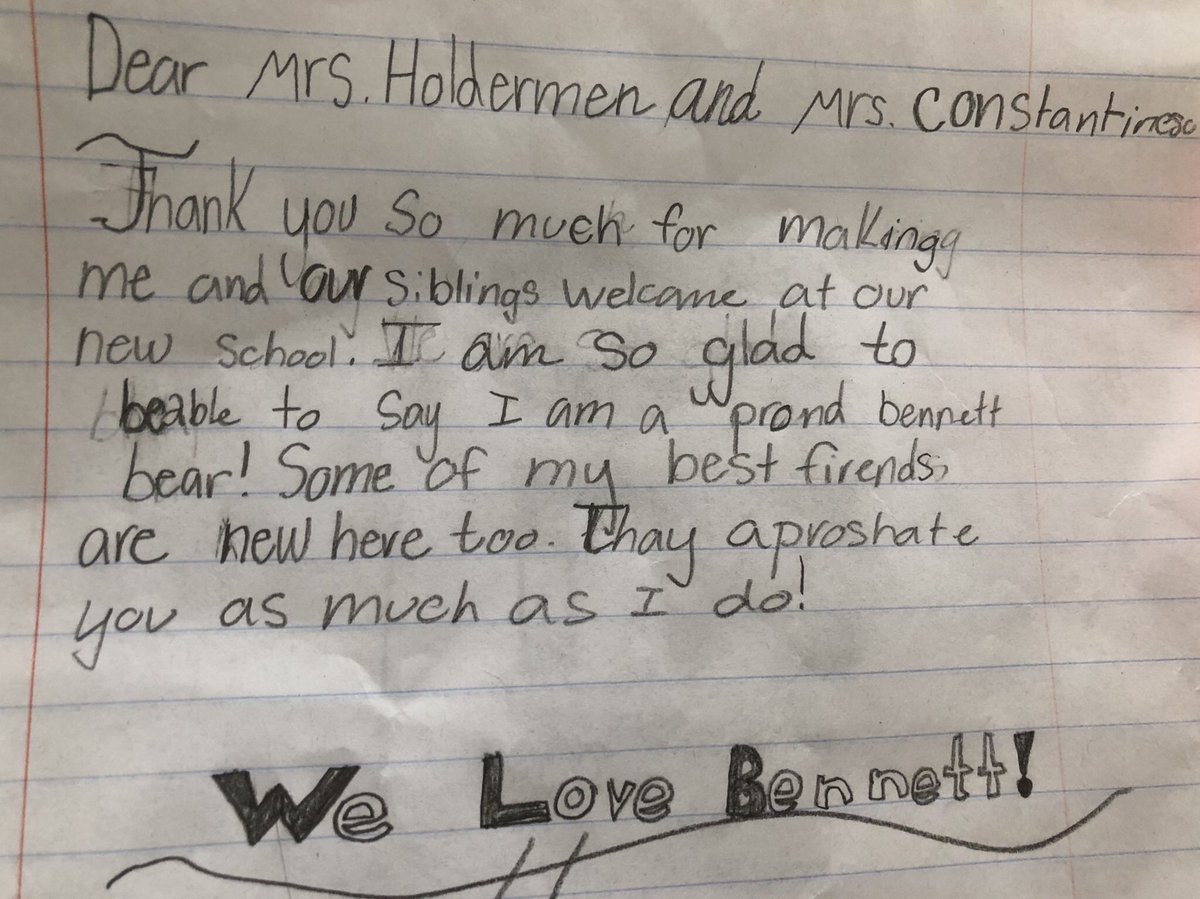 Dear Mrs. Holdermen and Mrs. Constantinesc
Thank you so much for makingg
me and our siblings welcame at our
new school. I am so glad to
beable to say I am a prond bennett
bear! Some of my best firends,
are new here too. Thay aproshate
you as much as I do!
We Love Bennett!